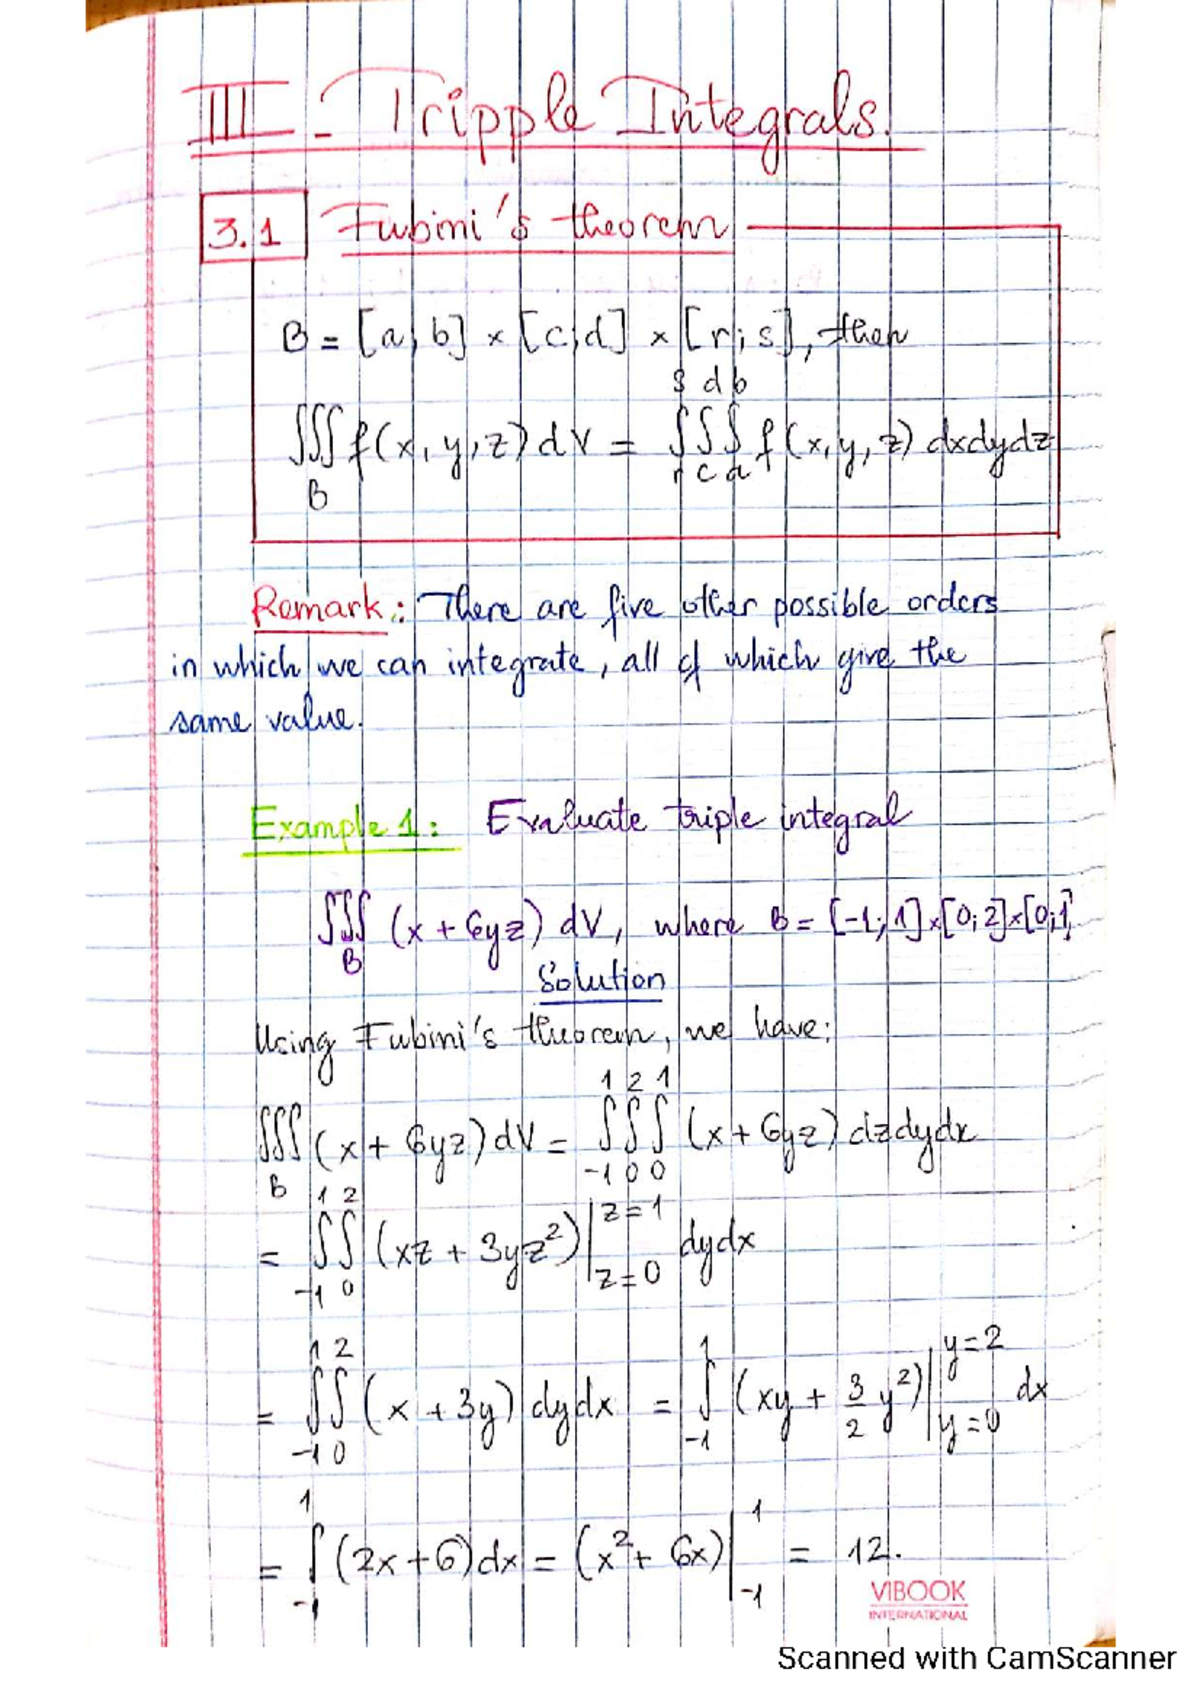 III - Tripple Integrals.
3.1 Fubini's theorem
B = [a; b] × [c; d] × [r; s], then
∭_B f(x, y, z) dV = ∫_r^s ∫_c^d ∫_a^b f(x, y, z) dxdydz
Remark: There are five other possible orders
in which we can integrate, all of which give the
same value.
Example 1: Evaluate triple integral
∭_B (x + 6yz) dV, where B = [-1; 1] × [0; 2] × [0; 1]
Solution
Using Fubini's theorem, we have:
∭_B (x + 6yz) dV = ∫_{-1}^1 ∫_0^2 ∫_0^1 (x + 6yz) dzdydx
= ∫_{-1}^1 ∫_0^2 (xz + 3yz²) |_{z=0}^{z=1} dydx
= ∫_{-1}^1 ∫_0^2 (x + 3y) dydx = ∫_{-1}^1 (xy + 3/2 y²) |_{y=0}^{y=2} dx
= ∫_{-1}^1 (2x + 6) dx = (x² + 6x) |_{-1}^1 = 12.
VIBOOK
INTERNATIONAL
Scanned with CamScanner